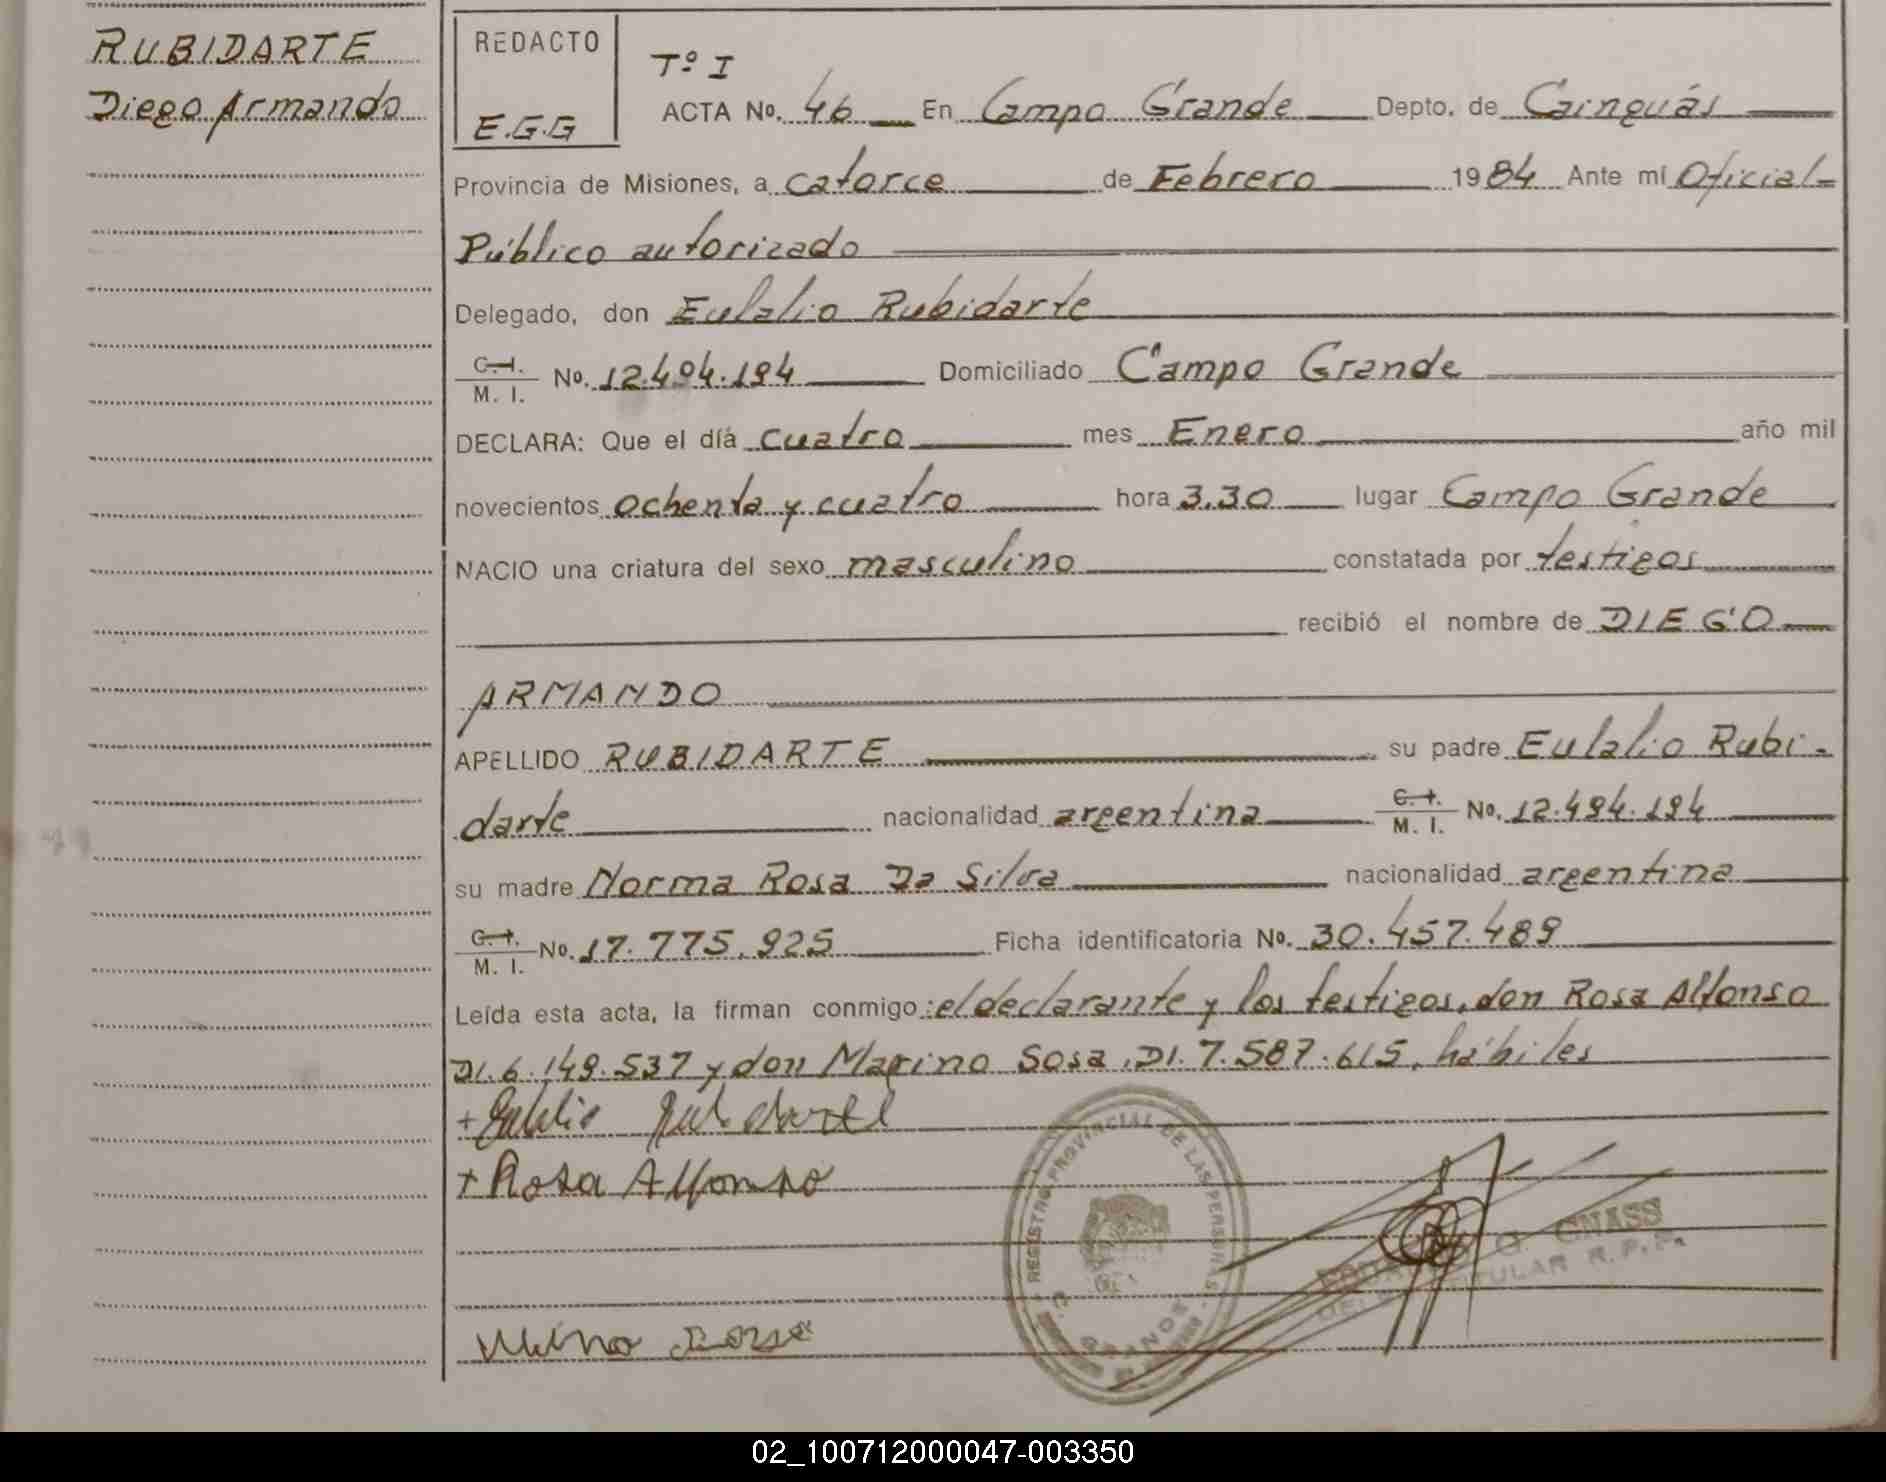 RUBIDARTE
Diego Armando
REDACTO
E.G.G
Tº I
ACTA No. 46 En Campo Grande Depto. de Cainguás
Provincia de Misiones, a catorce de Febrero 1984 Ante mí Oficial
Público autorizado
Delegado, don Eulalio Rubidarte
C. I.
M. I. No. 12.494.194 Domiciliado Campo Grande
DECLARA: Que el día cuatro mes Enero año mil
novecientos ochenta y cuatro hora 3.30 lugar Campo Grande
NACIO una criatura del sexo masculino constatada por testigos
recibió el nombre de DIEGO
ARMANDO
APELLIDO RUBIDARTE su padre Eulalio Rubi-
darte nacionalidad argentina C. I. M. I. No. 12.494.194
su madre Norma Rosa Da Silva nacionalidad argentina
C. I.
M. I. No. 17.775.925 Ficha identificatoria No. 30.457.489
Leída esta acta, la firman conmigo: el declarante y los testigos, don Rosa Alfonso
DI. 6.149.537 y don Marino Sosa, DI. 7.587.615, hábiles
+ Eulalio Rubidarte
+ Rosa Alfonso
REGISTRO PROVINCIAL DE LAS PERSONAS
C. GRANDE
G. GNASS
TITULAR R.P.P.
02_100712000047-003350